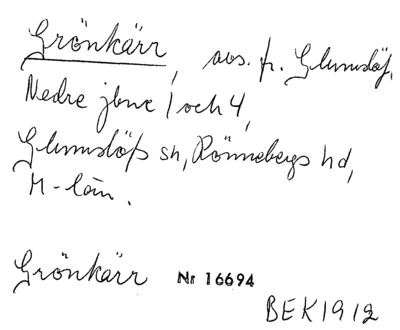 Grönkärr, avs. fr. Glumslöf,
Nedre jbnr 1 och 4,
Glumslöfs sn, Rönnebergs hd,
M-län.
Grönkärr Nr 16694
BEK 1912